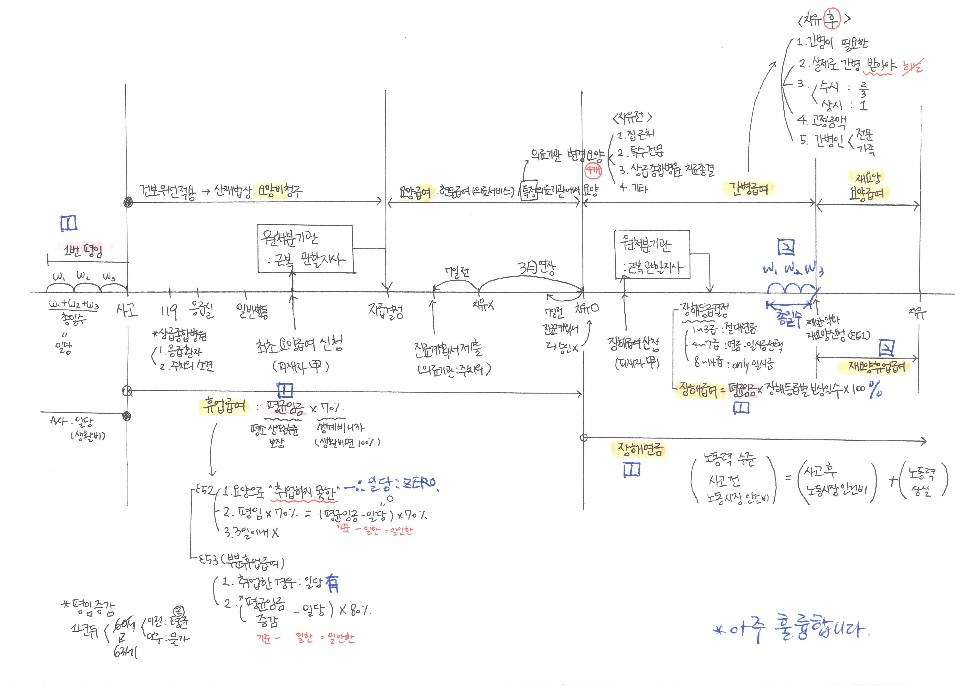 <치유 후>
1. 간병이 필요한
2. 실제로 간병 받아야
3. 수시 : 2/3
상시 : 1
4. 고정금액
5. 간병인 < 전문
가족
<치유전>
1. 집근처
2. 특수전문
3. 상급종합병원 치료종결
4. 기타
의료기관 변경요양
건보우선적용 → 산재법상 요양비청구
요양급여 : 현물급여 (의료서비스) / 특정의료기관에서 요양
간병급여
재요양
요양급여
1
1번 평임
원처분기관
: 근복 관할지사
7일전
3月연장
원처분기관
: 근복관할지사
2
w1 w2 w3
w1 w2 w3
w1+w2+w3
총일수
일당
사고
119
응급실
일반병동
지급결정
치유X
치유O
총일수
치유
*상급종합병원
1. 응급환자
2. 주치의 소견
최초 요양급여 신청
(피재자-甲)
진료계획서 제출
(의료기관 : 주치의)
장해급여 신청
(피재자-甲)
장해등급결정
1~3급 : 절대연금
4~7급 : 연금·일시금선택
8~14급 : only 일시금
장해급여 = 평균임금 × 장해등급별 보상일수 × 100%
1
재요양신청 (§51)
2
재요양휴업급여
1
휴업급여 : 평균임금 × 70%
평소 생활수준
보장
생계비니까
(생활비면 100%)
일당
(생활비)
장해연금
1
(노동력 수준
사고 전
노동시장 인건비) = (사고 후
노동시장 인건비) + (노동력
상실)
§52
1. 요양으로 "취업하지 못한" → ∴ 일당 : ZERO.
2. 평임 × 70% = (평균임금 - 일당) × 70%
기준 - 일한 = 일안한
3. 3일이내 X
§53 (부분휴업급여)
1. 취업한 경우 : 일당 有
2. (평균임금 - 일당) × 80%
증감
기준 - 일한 = 일안한
*평임증감
1년 듀
60세
이전 :
이후 : 물가
*아주 훌륭합니다.